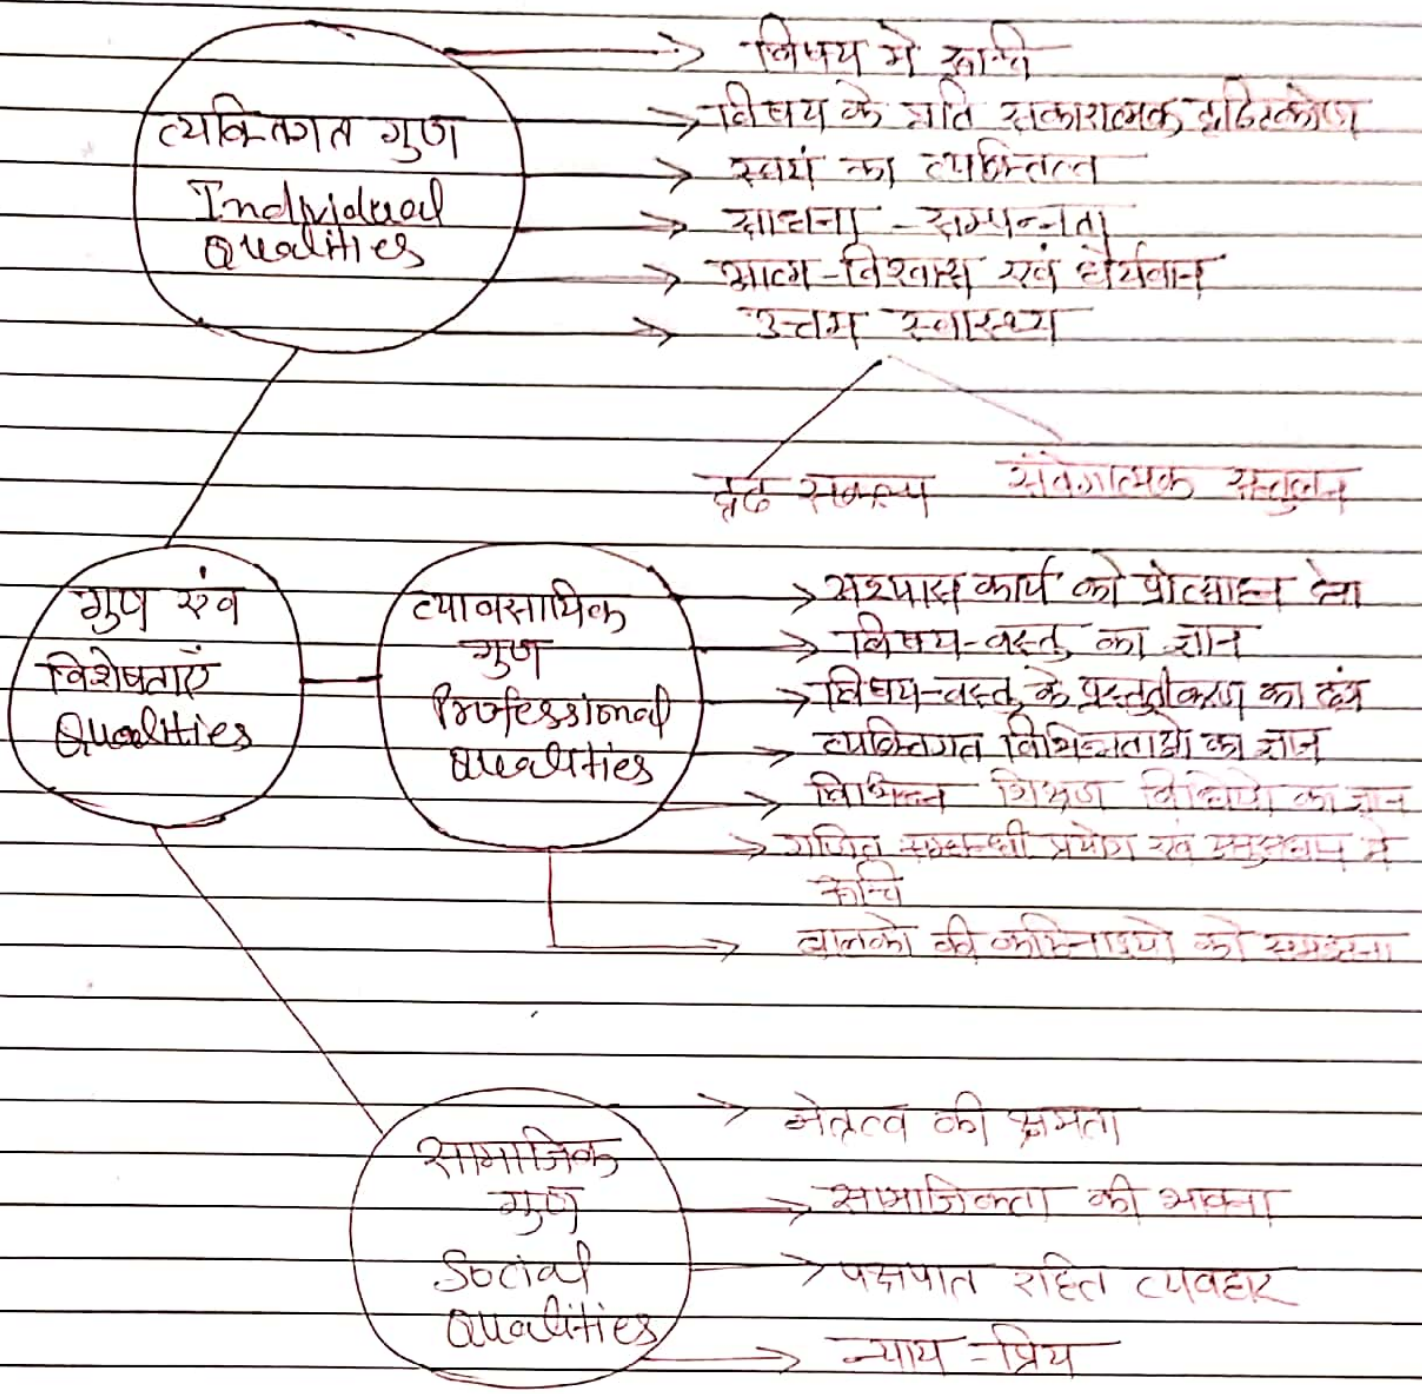 व्यक्तिगत गुण
Individual
Qualities
विषय में रूचि
विषय के प्रति सकारात्मक दृष्टिकोण
स्वयं का व्यक्तित्व
साधना - सम्पन्नता
आत्म-विश्वास एवं धैर्यवान
उत्तम स्वास्थ्य
दृढ सकल्प
संवेगात्मक सन्तुलन
गुण एंव
विशेषताएँ
Qualities
व्यावसायिक
गुण
Professional
Qualities
कार्य को प्रोत्साहन देना
विषय-वस्तु का ज्ञान
विषय-वस्तु के प्रस्तुतीकरण का ढंग
व्यक्तिगत विभिन्नताओ का ज्ञान
विभिन्न शिक्षण विधियो का ज्ञान
गणित सम्बन्धी प्रयोग एवं अनुसंधान में
रूचि
बालको की कठिनाइयो को समझना
सामाजिक
गुण
Social
Qualities
नेतृत्व की क्षमता
सामाजिकता की भावना
पक्षपात रहित व्यवहार
न्याय-प्रिय